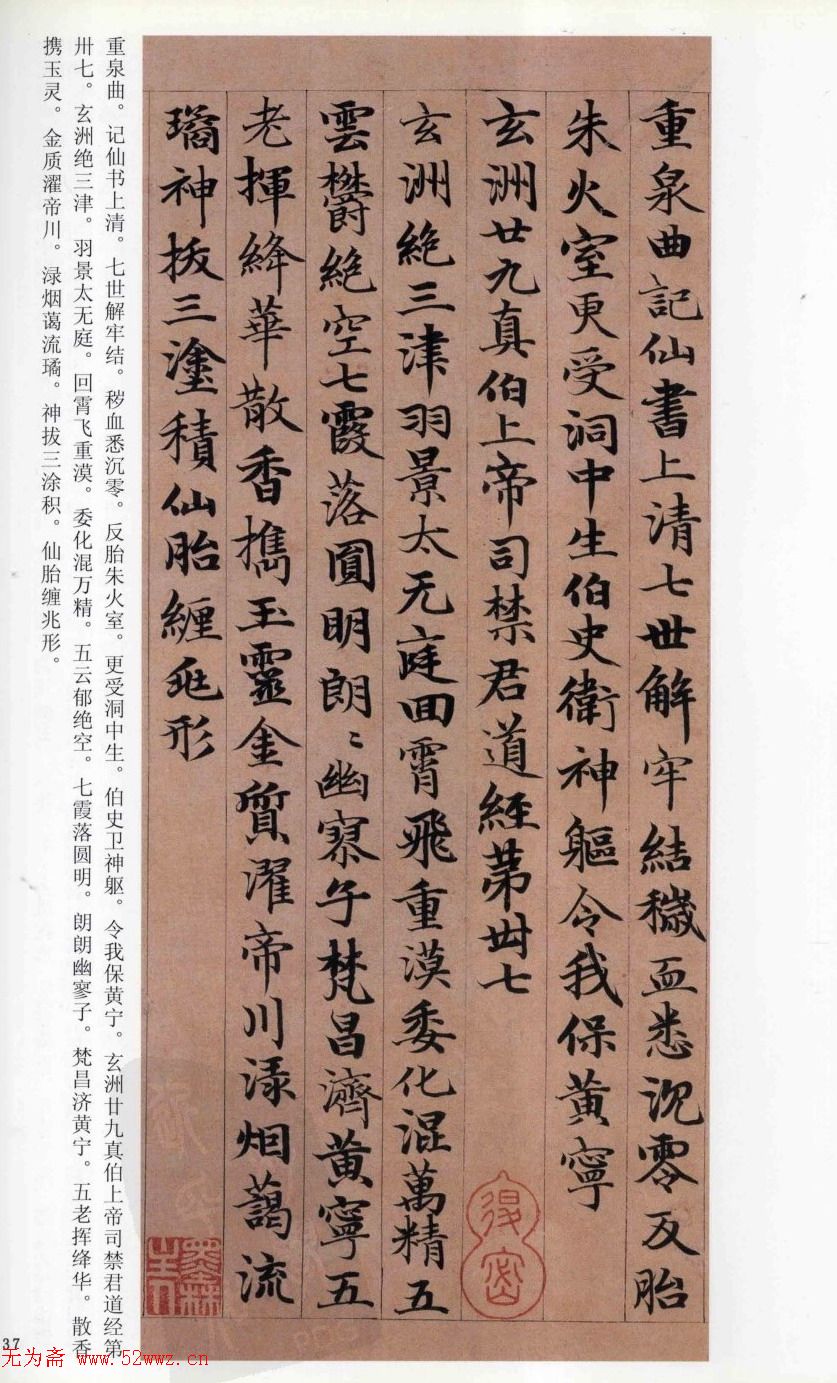 重泉曲記仙書上清七世解牢結穢血悉沉零反胎
朱火室更受洞中生伯史衛神軀令我保黄寧
玄洲廿九真伯上帝司禁君道經第卌七
玄洲絶三津羽景太无庭回霄飛重漠委化混萬精五
雲欝絶空七霞落圓明朗〻幽寥子梵昌濟黄寧五
老揮絳華散香携玉靈金質濯帝川渌烟藹流
璚神拔三塗積仙胎纏兆形
得密
墨林
重泉曲。记仙书上清。七世解牢结。秽血悉沉零。反胎朱火室。更受洞中生。伯史卫神躯。令我保黄宁。玄洲廿九真伯上帝司禁君道经第
卅七。玄洲绝三津。羽景太无庭。回霄飞重漠。委化混万精。五云郁绝空。七霞落圆明。朗朗幽寥子。梵昌济黄宁。五老挥绛华。散香
携玉灵。金质濯帝川。渌烟蔼流璚。神拔三涂积。仙胎缠兆形。
37
无为斋 www.52wwz.cn